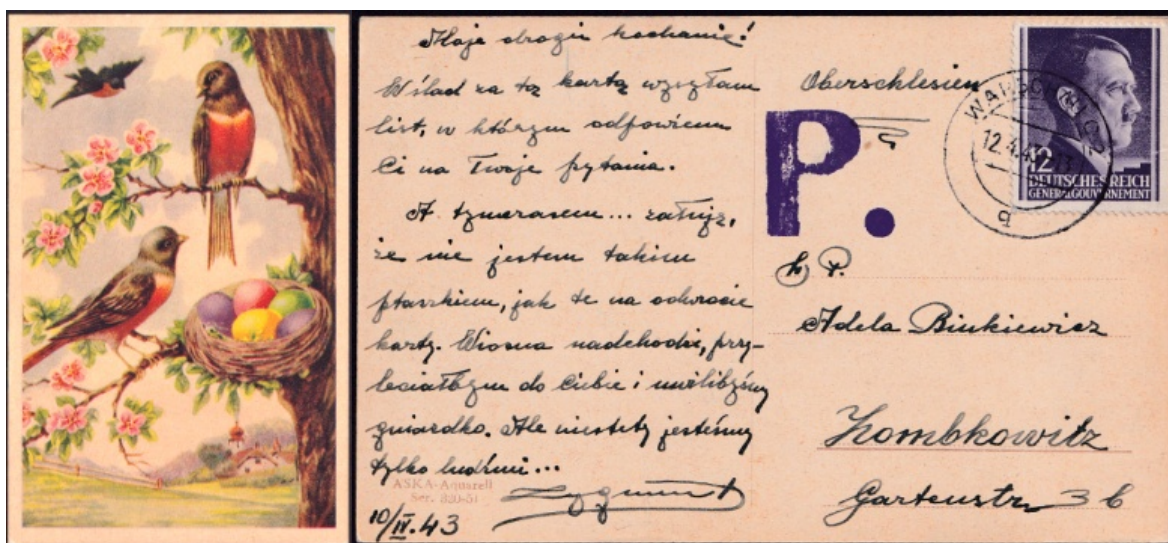 Moje drogie kochanie!
W ślad za tą kartą wysyłam
list, w którym odpowiem
Ci na Twoje pytania.
A tymczasem... żałuję,
że nie jestem takim
ptaszkiem, jak te na odwrocie
karty. Wiosna nadchodzi, przy-
leciałbym do Ciebie i uwilibyśmy
gniazdko. Ale niestety jesteśmy
tylko ludźmi...
Zygmunt
10/IV.43
ASKA-Aquarell
Ser. 330-51
Oberschlesien
P.
12.4.43
12
DEUTSCHES REICH
GENERALGOUVERNEMENT
q
P.
Adela Binkiewicz
Zombkowitz
Gartenstr. 3 b